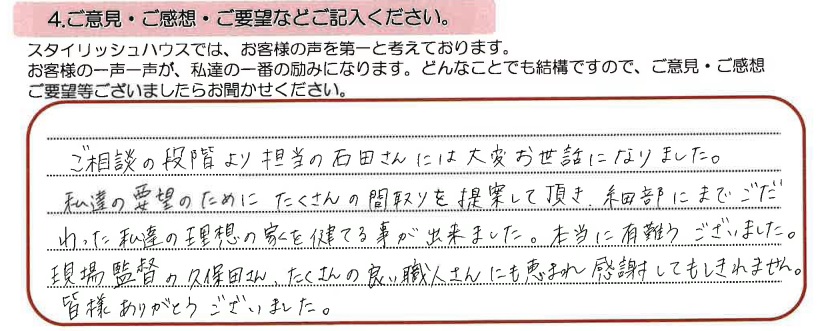 4.ご意見・ご感想・ご要望などご記入ください。
スタイリッシュハウスでは、お客様の声を第一と考えております。
お客様の一声一声が、私達の一番の励みになります。どんなことでも結構ですので、ご意見・ご感想
ご要望等ございましたらお聞かせください。
ご相談の段階より担当の石田さんには大変お世話になりました。
私達の要望のためにたくさんの間取りを提案して頂き、細部にまでこだ
わった私達の理想の家を健てる事が出来ました。本当に有難うございました。
現場監督の久保田さん、たくさんの良い職人さんにも恵まれ感謝してもしきれません。
皆様ありがとうございました。